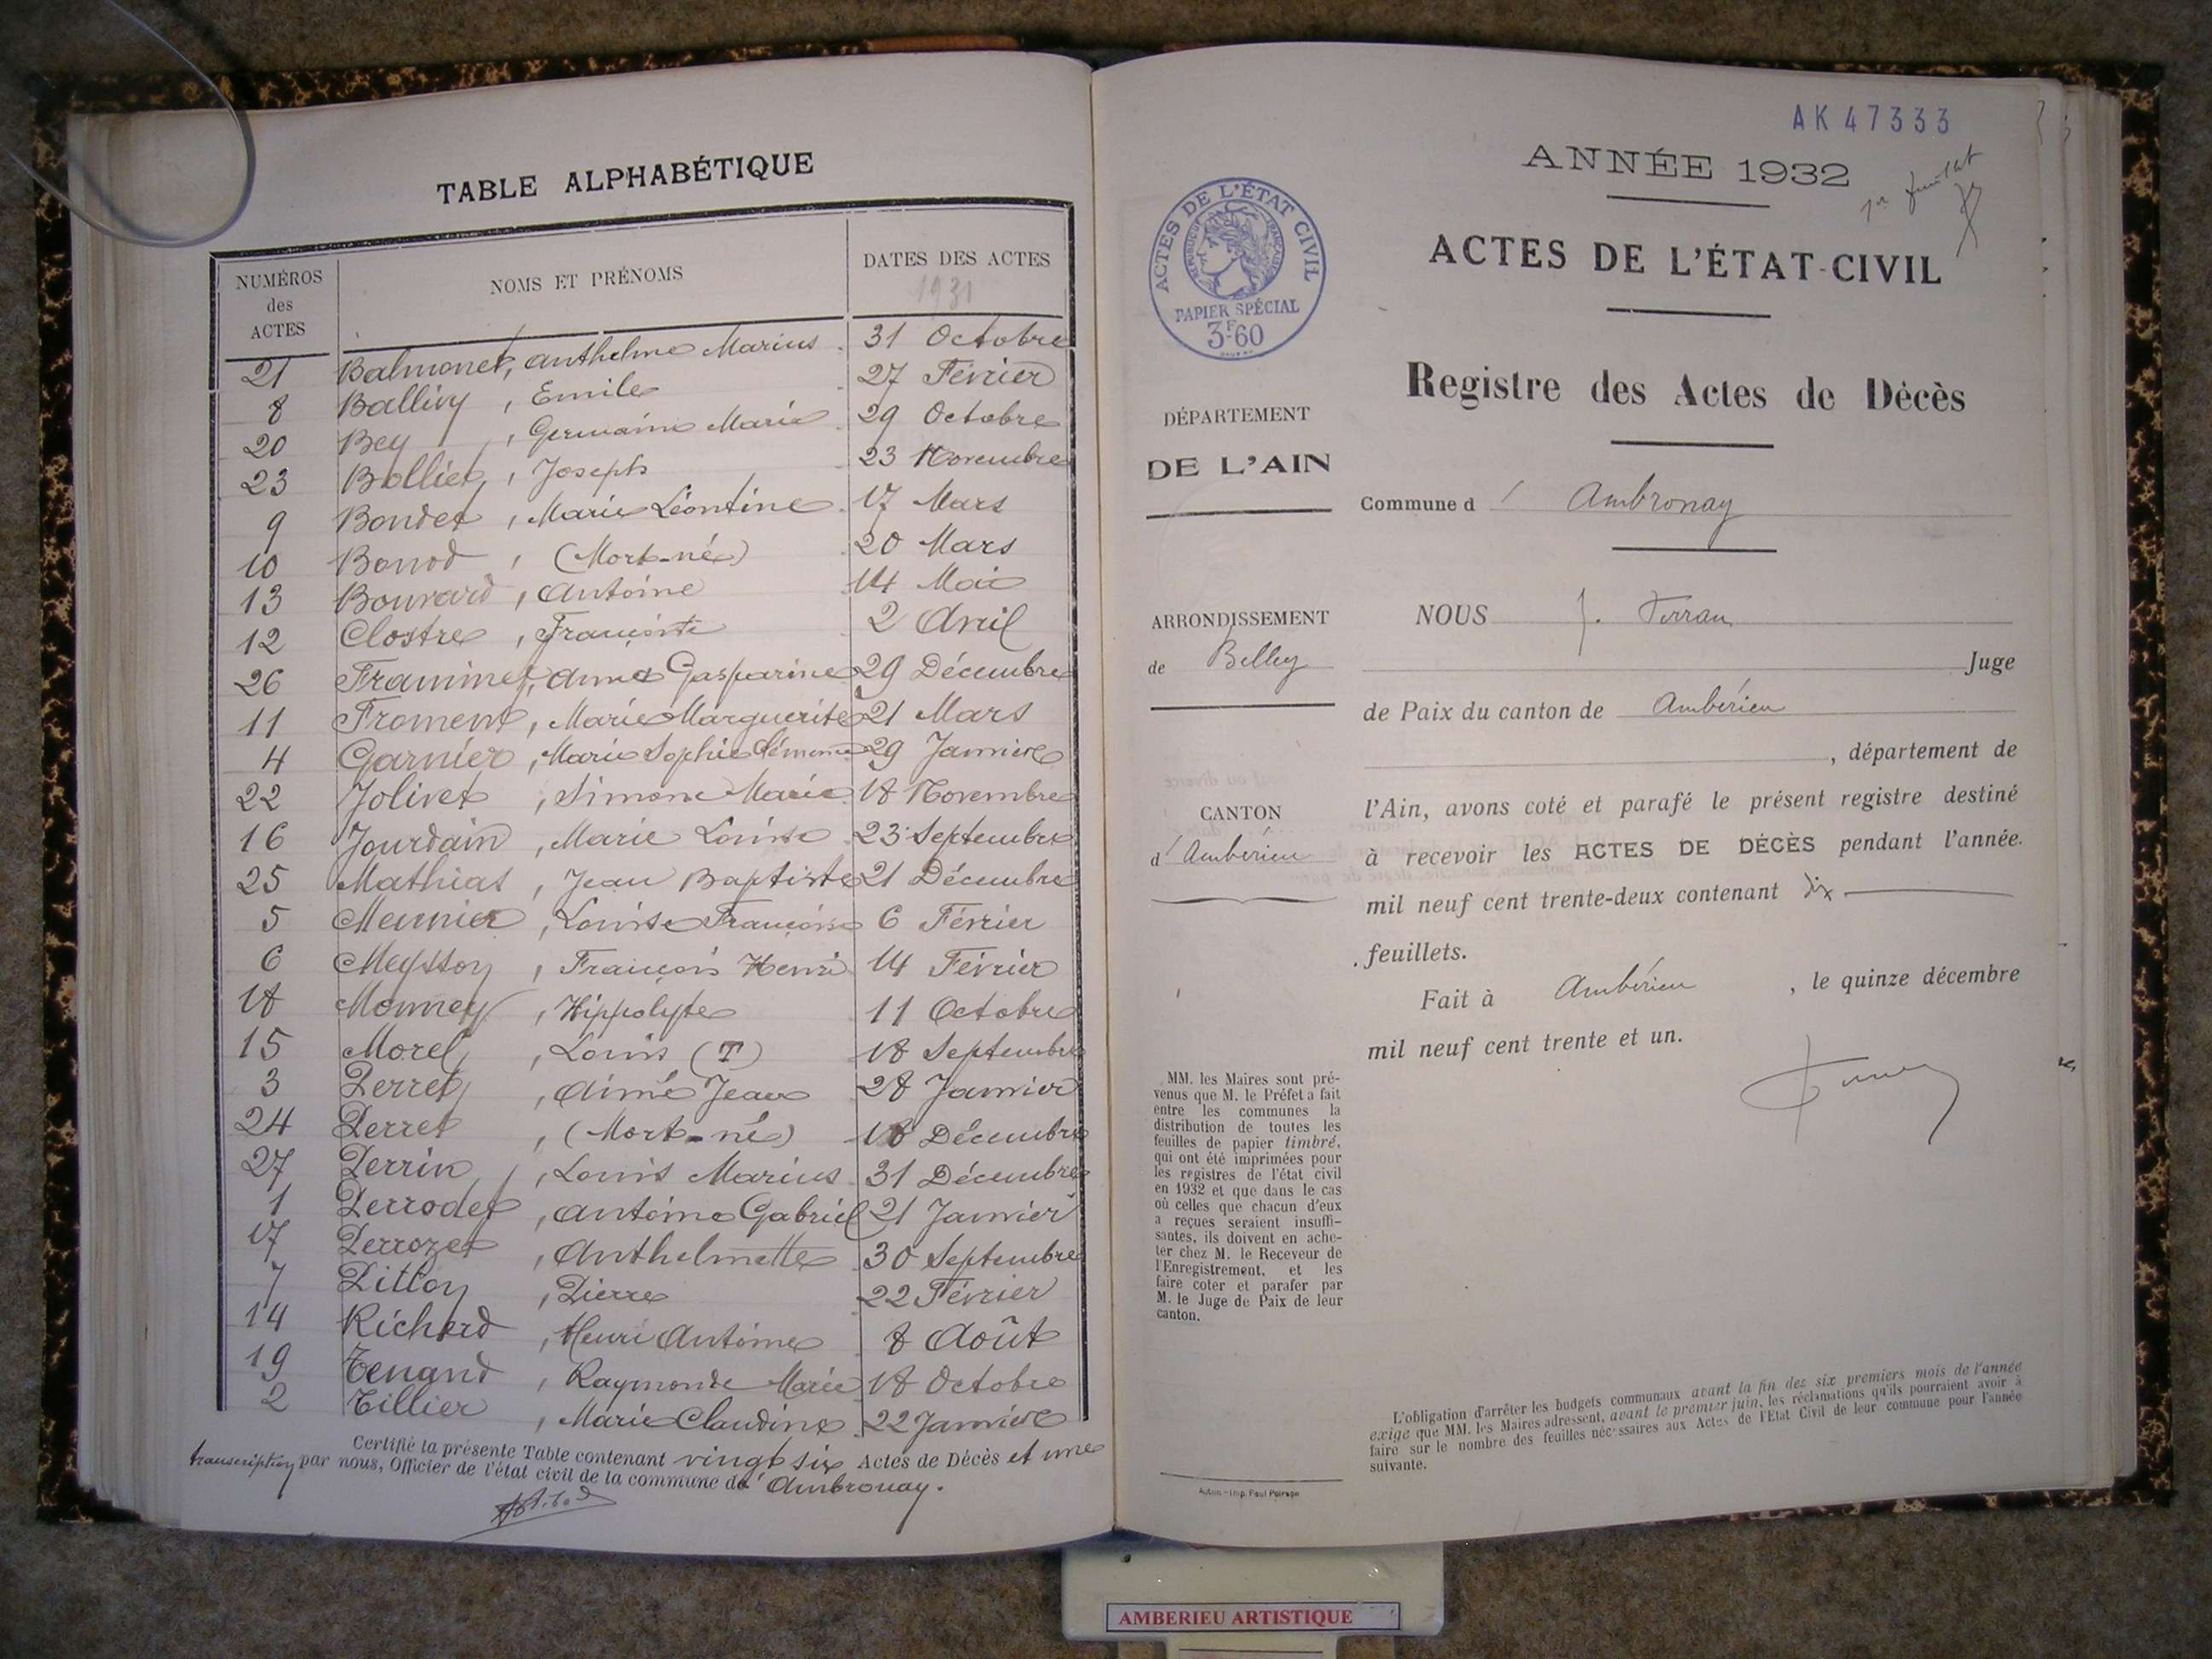 TABLE ALPHABÉTIQUE
NUMÉROS des ACTES
NOMS ET PRÉNOMS
DATES DES ACTES
1931
21 Balmonet, Anthelme Marius 31 Octobre
8 Ballivy, Emile 27 Février
20 Bey, Germaine Marie 29 Octobre
23 Bolliet, Joseph 23 Novembre
9 Bondet, Marie Léontine 17 Mars
10 Bonnod, (Mort-né) 20 Mars
13 Bouvard, Antoine 14 Mai
12 Clostre, Françoise 2 Avril
26 Framinet, Anna Gasparine 29 Décembre
11 Froment, Marie Marguerite 21 Mars
4 Garnier, Marie Sophie 29 Janvier
22 Jolivet, Simone Marie 18 Novembre
16 Jourdain, Marie Louise 23 Septembre
25 Mathias, Jean Baptiste 21 Décembre
5 Meunier, Louise Françoise 6 Février
6 Meysson, François Henri 14 Février
18 Monney, Hippolyte 11 Octobre
15 Morel, Louis (T) 18 Septembre
3 Perret, Aimé Jean 28 Janvier
24 Perret, (Mort-né) 18 Décembre
27 Perrin, Louis Marius 31 Décembre
1 Perrodet, Antoine Gabriel 21 Janvier
17 Perrozet, Anthelmette 30 Septembre
7 Pittion, Pierre 22 Février
14 Richard, Henri Antoine 8 Août
19 Tenand, Raymonde Marie 18 Octobre
2 Tillier, Marie Claudine 22 Janvier
Certifié la présente Table contenant vingt six Actes de Décès et une
transcription par nous, Officier de l'état civil de la commune d'Ambronay.
AK 47333
ANNÉE 1932
1er feuillet
ACTES DE L'ÉTAT CIVIL
RÉPUBLIQUE FRANÇAISE
PAPIER SPÉCIAL
3F60
ACTES DE L'ÉTAT-CIVIL
Registre des Actes de Décès
DÉPARTEMENT
DE L'AIN
Commune d' Ambronay
ARRONDISSEMENT
de Belley
NOUS J. Ferran
Juge
de Paix du canton de Ambérieu
, département de
CANTON
d'Ambérieu
l'Ain, avons coté et parafé le présent registre destiné
à recevoir les ACTES DE DÉCÈS pendant l'année
mil neuf cent trente-deux contenant dix
feuillets.
Fait à Ambérieu, le quinze décembre
mil neuf cent trente et un.
MM. les Maires sont pré-
venus que M. le Préfet a fait
entre les communes la
distribution de toutes les
feuilles de papier timbré,
qui ont été imprimées pour
les registres de l'état civil
en 1932 et que dans le cas
où celles que chacun d'eux
a reçues seraient insuffi-
santes, ils doivent en ache-
ter chez M. le Receveur de
l'Enregistrement, et les
faire coter et parafer par
M. le Juge de Paix de leur
canton.
L'obligation d'arrêter les budgets communaux avant la fin des six premiers mois de l'année
exige que MM. les Maires adressent, avant le premier juin, les réclamations qu'ils pourraient avoir à
faire sur le nombre des feuilles nécessaires aux Actes de l'Etat Civil de leur commune pour l'année
suivante.
Autun - Imp. Paul Poirson
AMBERIEU ARTISTIQUE